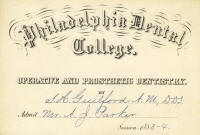 Philadelphia Dental
College.
OPERATIVE AND PROSTHETIC DENTISTRY.
BY
S. H. Guilford A. M., D.D.S.
Admit Mr. A. J. Parker
Session 1883-4.